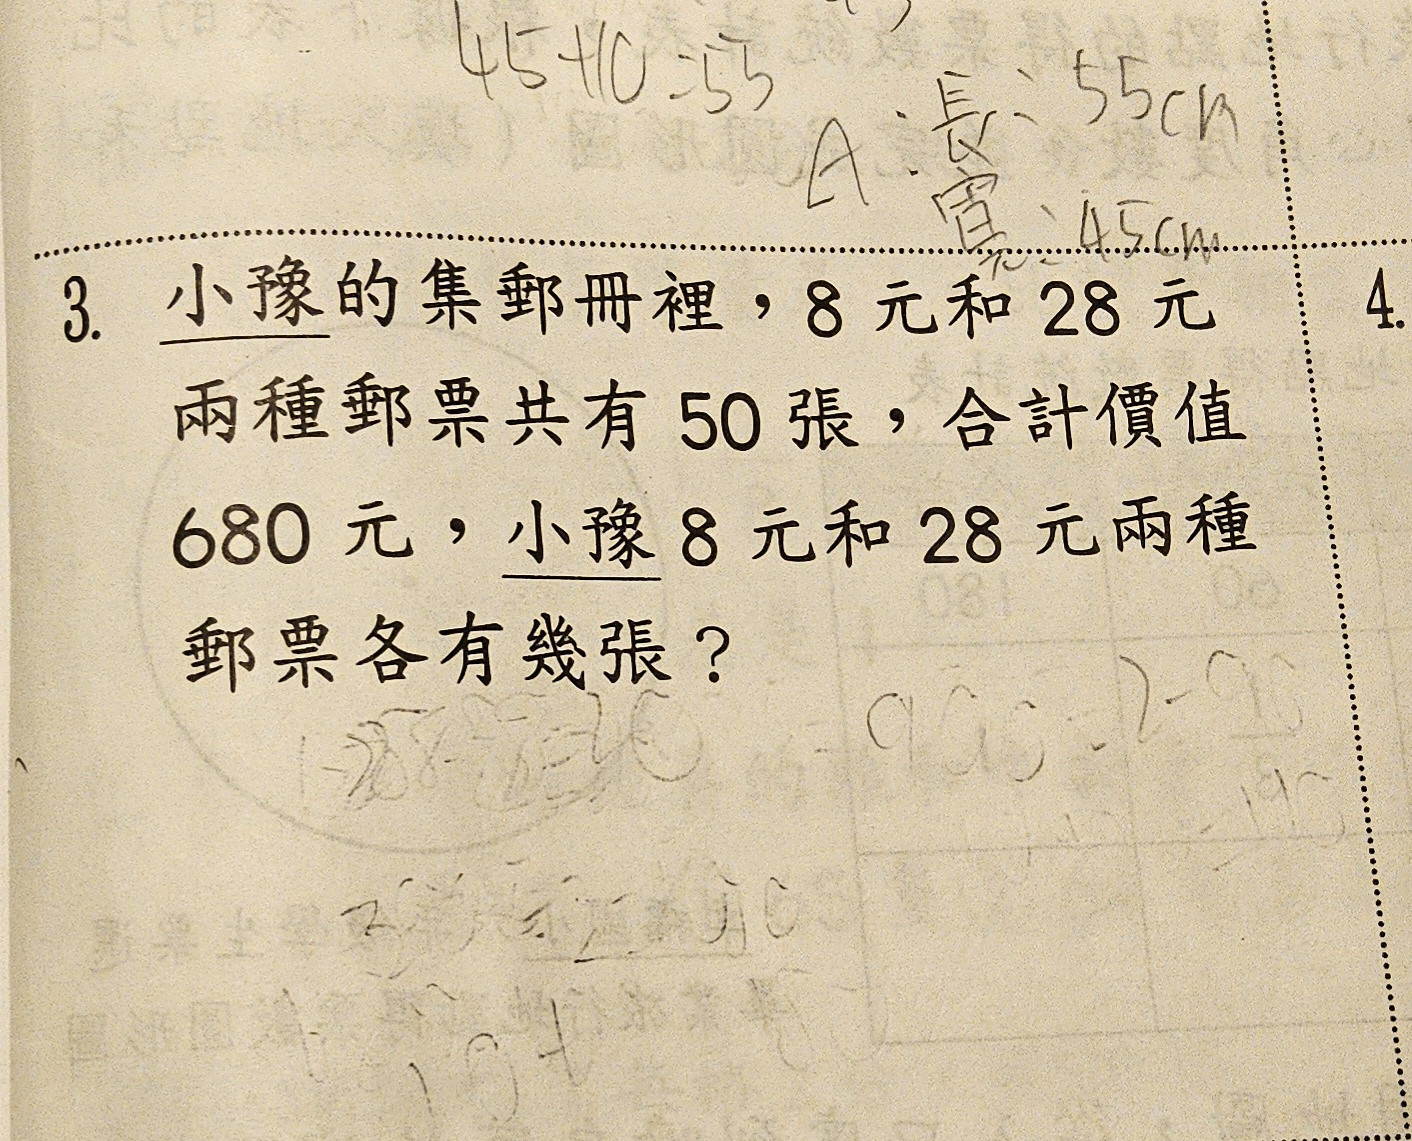 45+10=55
A:長:55cm
寬:45cm
3. 小豫的集郵冊裡，8元和28元
兩種郵票共有50張，合計價值
680元，小豫8元和28元兩種
郵票各有幾張？
4.